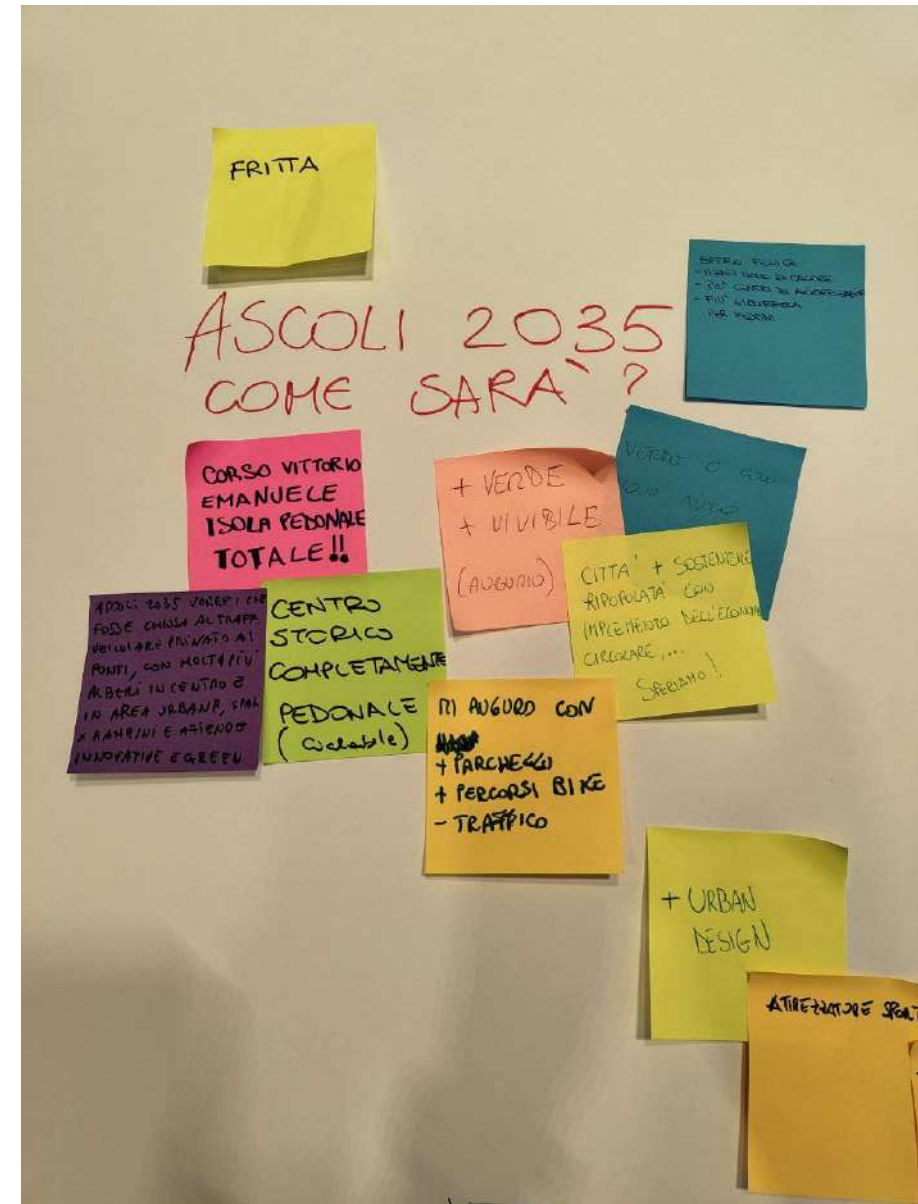 FRITTA
ASCOLI 2035
COME SARÀ?
- PIÙ CENTRI DI
- PIÙ SICUREZZA
PER PEDONI
CORSO VITTORIO
EMANUELE
ISOLA PEDONALE
TOTALE!!
+ VERDE
+ VIVIBILE
(AUGURIO)
VERDE O
CITTA' + SOSTENIBILE
RIPOPOLATA CON
IMPLEMENTO DELL'ECONOMIA
CIRCOLARE,...
SPERIAMO!
ASCOLI 2035 VORREI CHE
FOSSE CHIUSA AL TRAFF
VEICOLARE PRIVATO AI
PONTI, CON MOLTI PIÙ
ALBERI IN CENTRO E
IN AREA URBANA, SPAZI
X BAMBINI E AZIENDE
INNOVATIVE E GREEN.
CENTRO
STORICO
COMPLETAMENTE
PEDONALE
(Ciclabile)
MI AUGURO CON
+ PARCHEGGI
+ PERCORSI BIKE
- TRAFFICO
+ URBAN
DESIGN
ATTREZZATURE SPORT